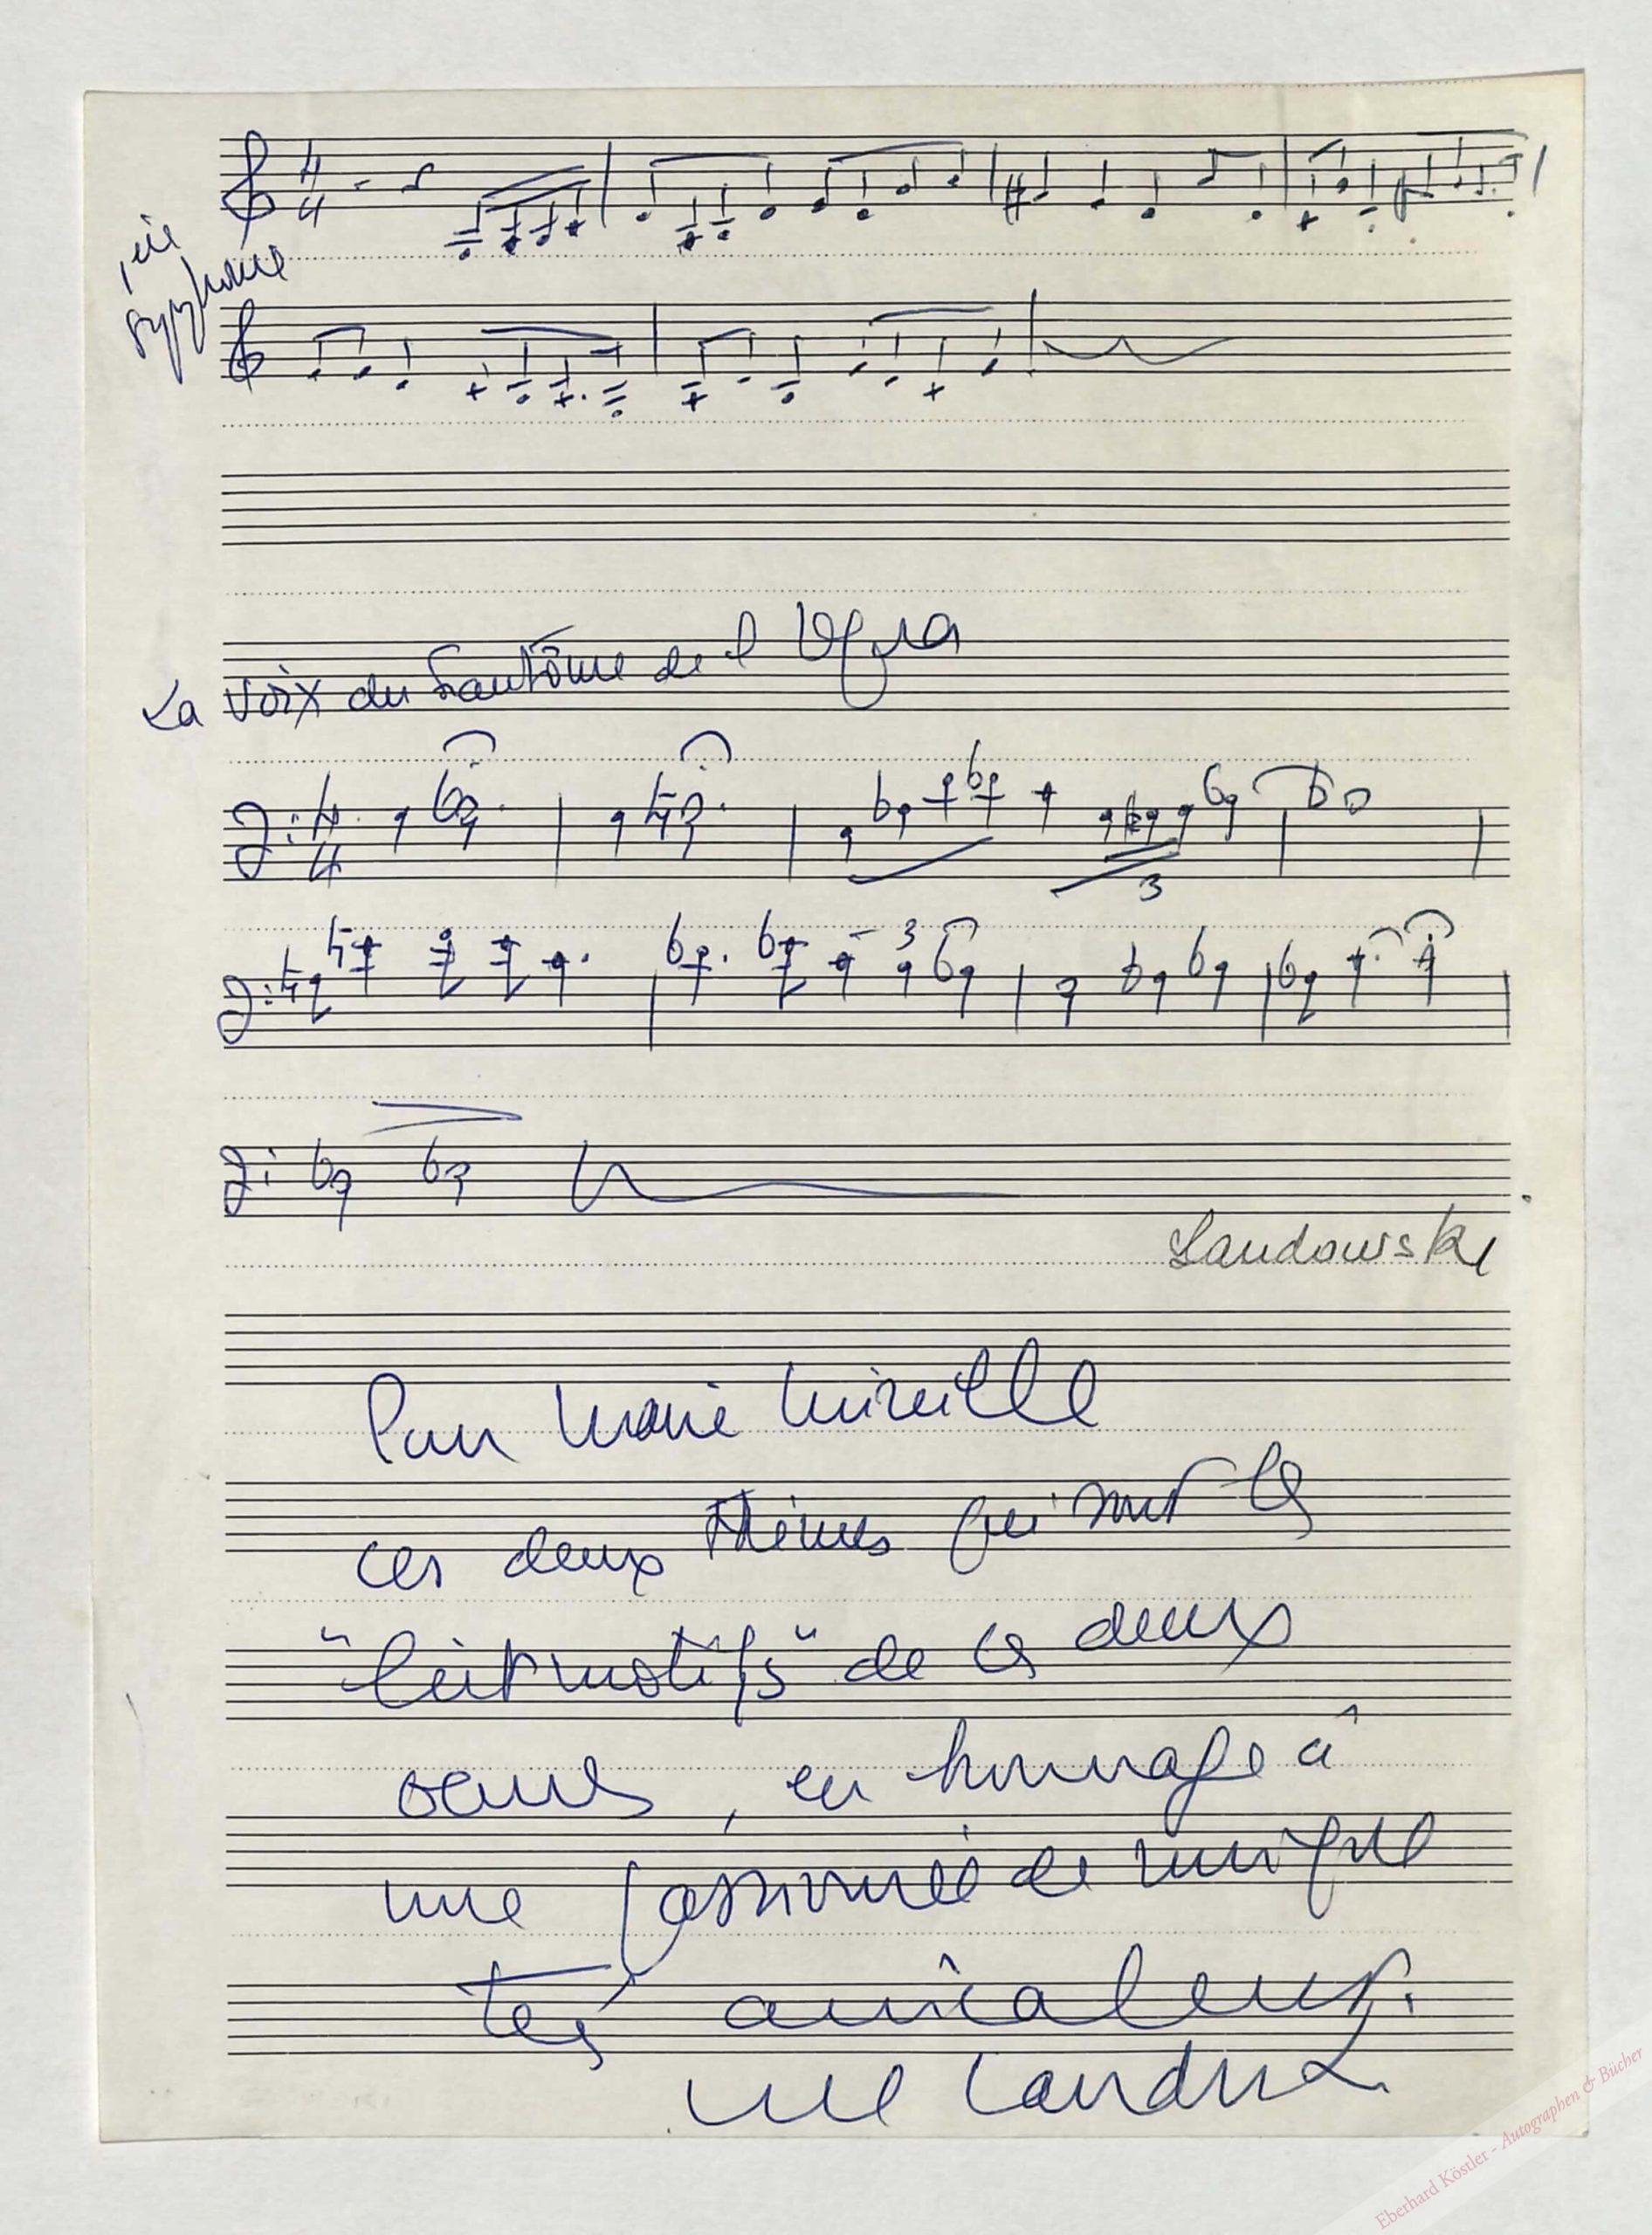 1ère
Symphonie
La voix du Fantôme de l'Opéra
3
3
Landowski
Pour Marie Mireille
ces deux thèmes qui sont les
"leitmotifs" de ces deux
œuvres, en hommage à
une passionnée de musique
très amicalement
M Landowski
Eberhard Köstler - Autographen & Bücher